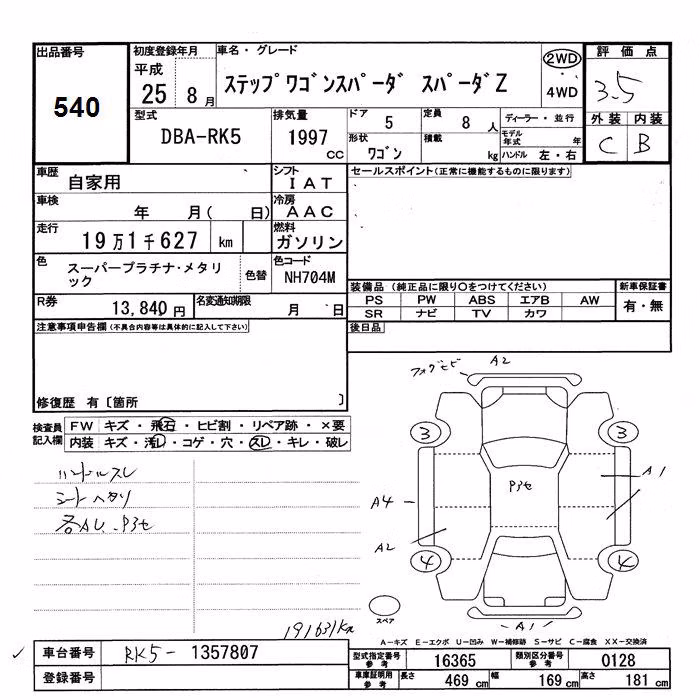 出品番号
540
初度登録年月
平成
25 8月
車名・グレード
ステップワゴンスパーダ スパーダZ
2WD
4WD
評価点
3.5
外装 内装
C B
型式
DBA-RK5
排気量
1997
cc
ドア
5
定員
8 人
形状
ワゴン
積載
kg
ディーラー・並行
モデル年式 年
ハンドル 左・右
車歴
自家用
シフト
IAT
車検
年 月( 日)
冷房
AAC
走行
19万1千627 km
燃料
ガソリン
色
スーパープラチナ・メタリ
ック
色替
色コード
NH704M
R券
13,840円
名変通知期限
月 日
セールスポイント(正常に機能するものに限ります)
装備品 (純正品に限り○をつけてください)
PS PW ABS エアB AW
SR ナビ TV カワ
新車保証書
有・無
後日品
注意事項申告欄(不具合内容等は具体的に記入して下さい)
修復歴 有〔箇所 〕
検査員
記入欄
FW キズ・飛石・ヒビ割・リペア跡・×要
内装 キズ・汚レ・コゲ・穴・スレ・キレ・破レ
ハンドルスレ
シートヘタリ
各AU、P3セ
フォグヒビ
A2
3
3
P3セ
A1
A4
A2
4
4
スペア
A1
191631km
A-キズ E-エクボ U-凹み W-補修跡 S-サビ C-腐食 XX-交換済
車台番号
RK5-1357807
登録番号
型式指定番号
参考
16365
類別区分番号
参考
0128
車庫証明用
参考
長さ
469 cm
幅
169 cm
高さ
181 cm